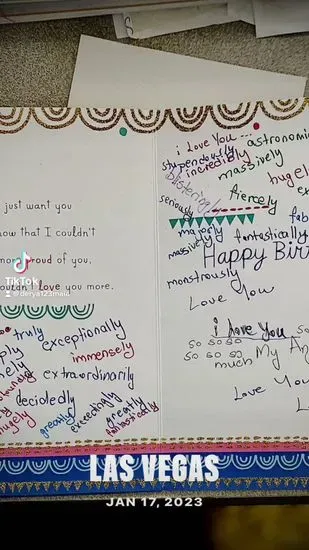 just want you
now that I couldn't
more proud of you,
couldn't love you more.
TikTok
truly
exceptionally
immensely
extraordinarily
decidedly
greatly
exceedingly
greatly
i Love You ... astronomi
stupendously
incredibly
blistering
massively
hugel
seriously
fiercely
ex
majorly
fab
massively
fantastically
Happy Birt
monstrously
Love You
i love you so
so so so
so so so
much My An
Love You
L
LAS VEGAS
JAN 17, 2023